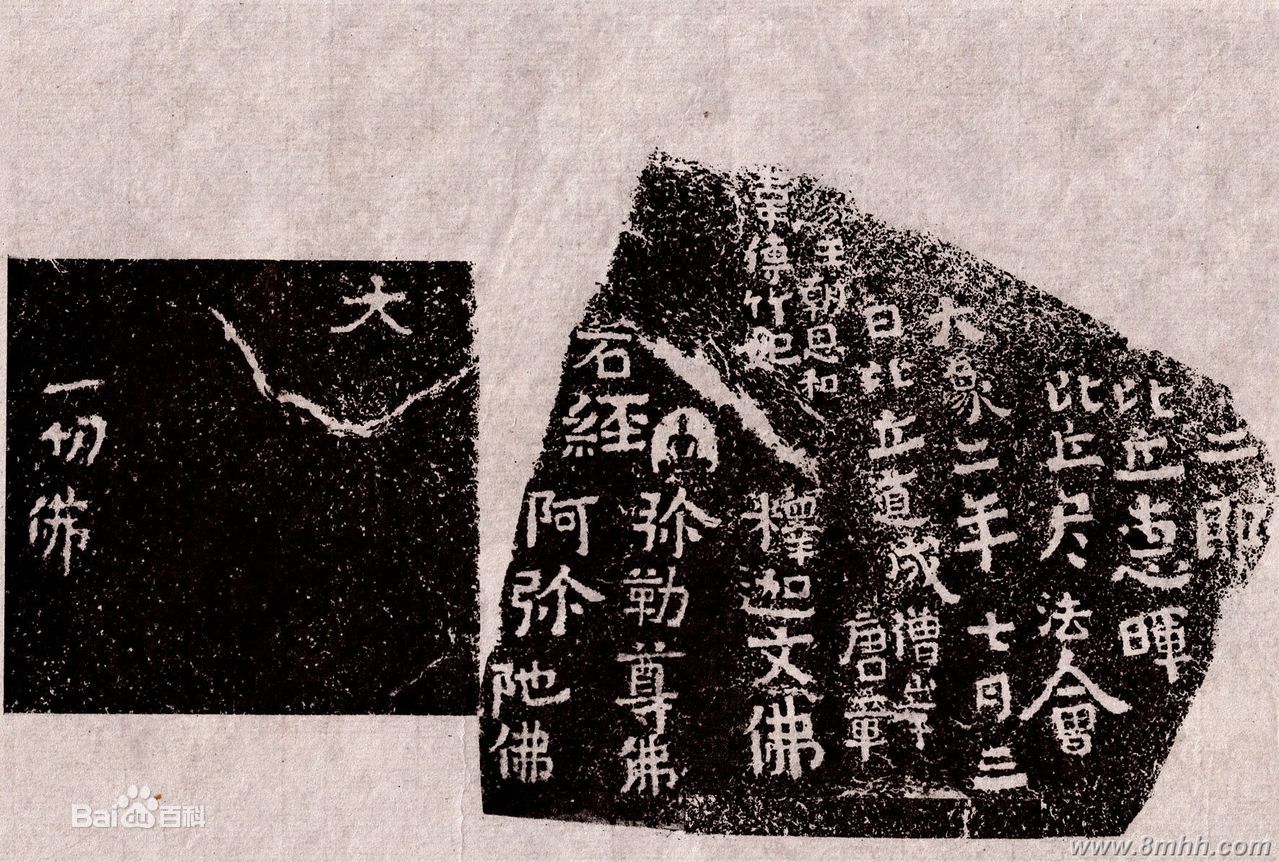 二郎
比丘惠暉
比丘尼法會
大象二年七月三
日比丘道成
僧
唐章
主朝恩和
釋迦文佛
弥勒尊佛
石經
阿弥陁佛
大
一切佛
Bai百科
www.8mhh.com